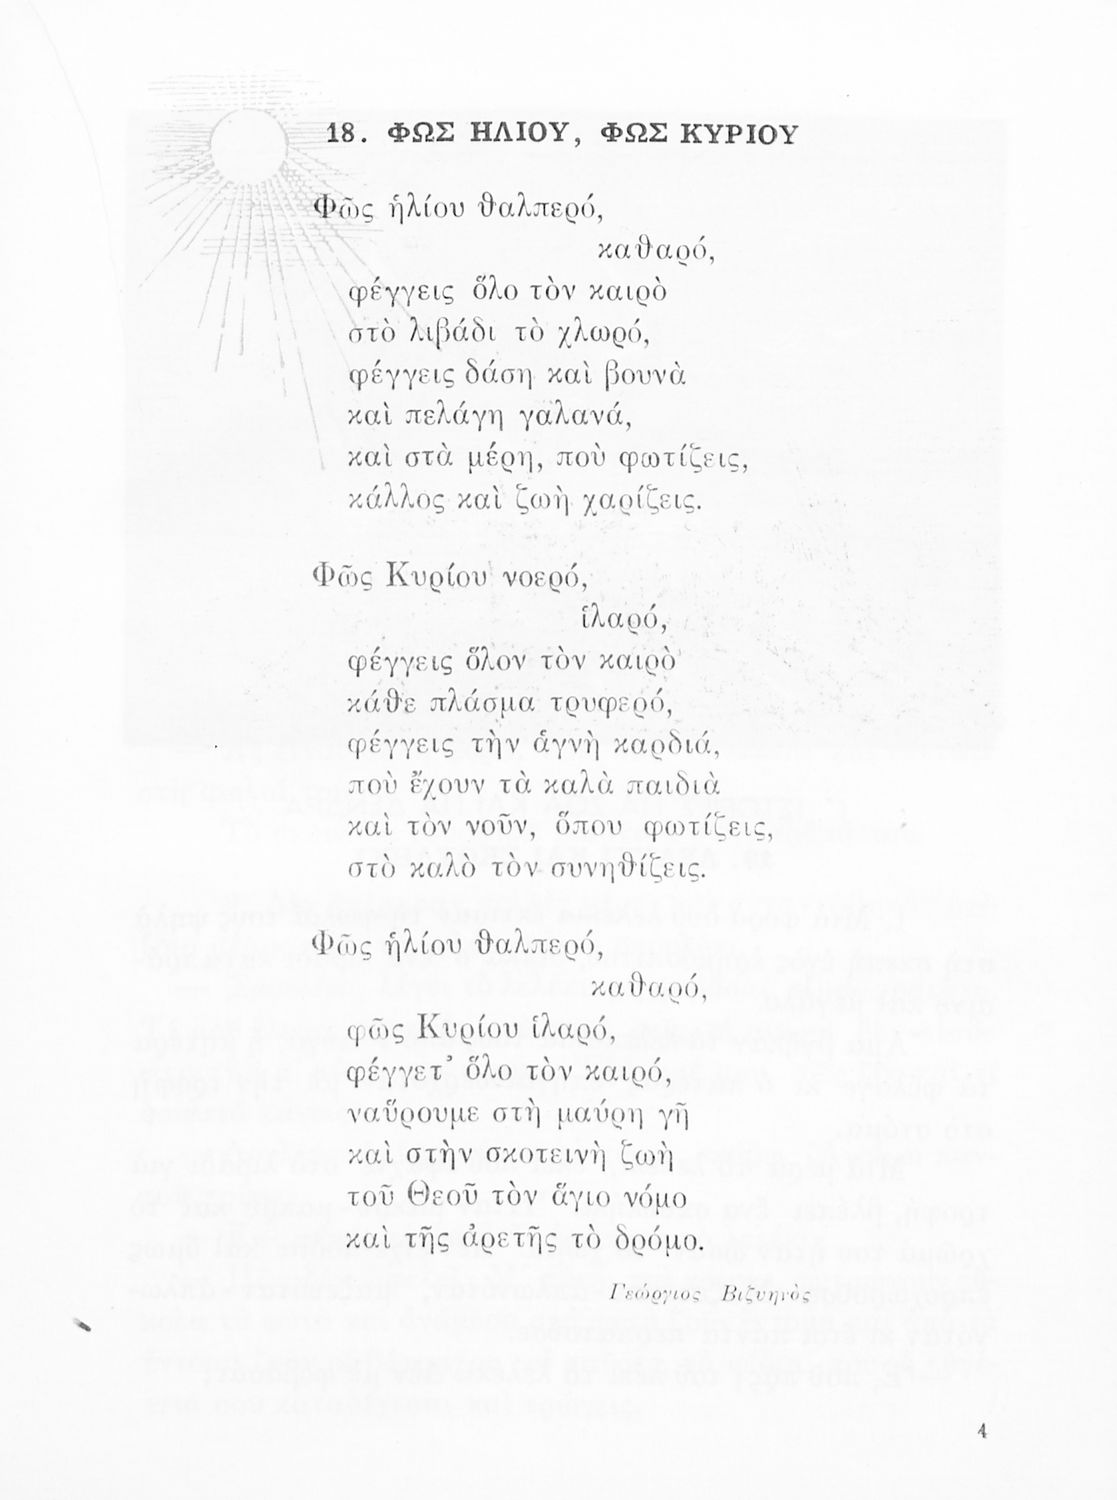 18. ΦΩΣ ΗΛΙΟΥ, ΦΩΣ ΚΥΡΙΟΥ
Φῶς ἡλίου θαλπερό,
καθαρό,
φέγγεις ὅλο τὸν καιρὸ
στὸ λιβάδι τὸ χλωρό,
φέγγεις δάση καὶ βουνὰ
καὶ πελάγη γαλανά,
καὶ στὰ μέρη, ποὺ φωτίζεις,
κάλλος καὶ ζωὴ χαρίζεις.
Φῶς Κυρίου νοερό,
ἱλαρό,
φέγγεις ὅλον τὸν καιρὸ
κάθε πλάσμα τρυφερό,
φέγγεις τὴν ἁγνὴ καρδιά,
ποὺ ἔχουν τὰ καλὰ παιδιὰ
καὶ τὸν νοῦν, ὅπου φωτίζεις,
στὸ καλὸ τὸν συνηθίζεις.
Φῶς ἡλίου θαλπερό,
καθαρό,
φῶς Κυρίου ἱλαρό,
φέγγετ᾿ ὅλο τὸν καιρό,
ναὕρουμε στὴ μαύρη γῆ
καὶ στὴν σκοτεινὴ ζωὴ
τοῦ Θεοῦ τὸν ἅγιο νόμο
καὶ τῆς ἀρετῆς τὸ δρόμο.
Γεώργιος Βιζυηνὸς
4